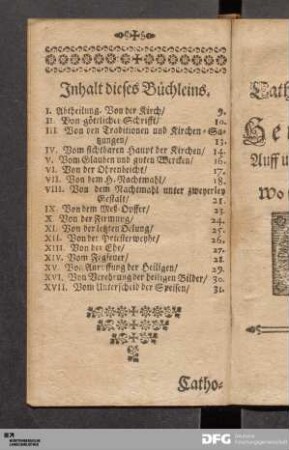 Inhalt dieses Büchleins.
I. Abtheilung. Von der Kirch/ 9.
II. Von göttlicher Schrifft/ 10.
III. Von den Traditionen und Kirchen-Sa-
tzungen/ 13.
IV. Vom sichtbaren Haupt der Kirchen/ 14.
V. Vom Glauben und guten Wercken/ 16.
VI. Von der Ohrenbeicht/ 17.
VII. Von dem H. Nachtmahl/ 18.
VIII. Von dem Nachtmahl unter zweyerley
Gestalt/ 21.
IX. Von dem Meß-Opffer/ 23.
X. Von der Firmung/ 24.
XI. Von der letzten Oelung/ 25.
XII. Von der Priesterweyhe/ 26.
XIII. Von der Ehe/ 27.
XIV. Vom Fegfeuer/ 21.
XV. Von Anruffung der Heiligen/ 29.
XVI. Von Verehrung der heiligen Bilder/ 30.
XVII. Vom Unterscheid der Speisen/ 31.
Catho-
Cath
Auff u
Wo
WÜRTTEMBERGISCHE
LANDESBIBLIOTHEK
DFG Deutsche
Forschungsgemeinschaft